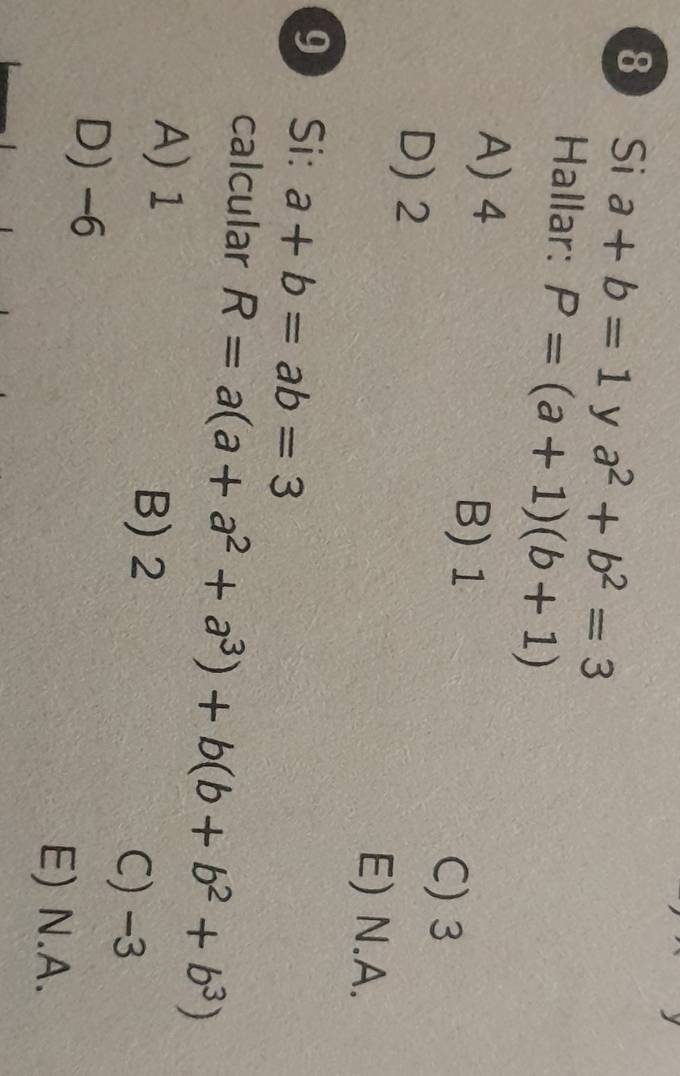 8 Si a + b = 1 y a² + b² = 3
Hallar: P = (a + 1)(b + 1)
A) 4 B) 1 C) 3
D) 2 E) N.A.
9 Si: a + b = ab = 3
calcular R = a(a + a² + a³) + b(b + b² + b³)
A) 1 B) 2 C) –3
D) –6 E) N.A.